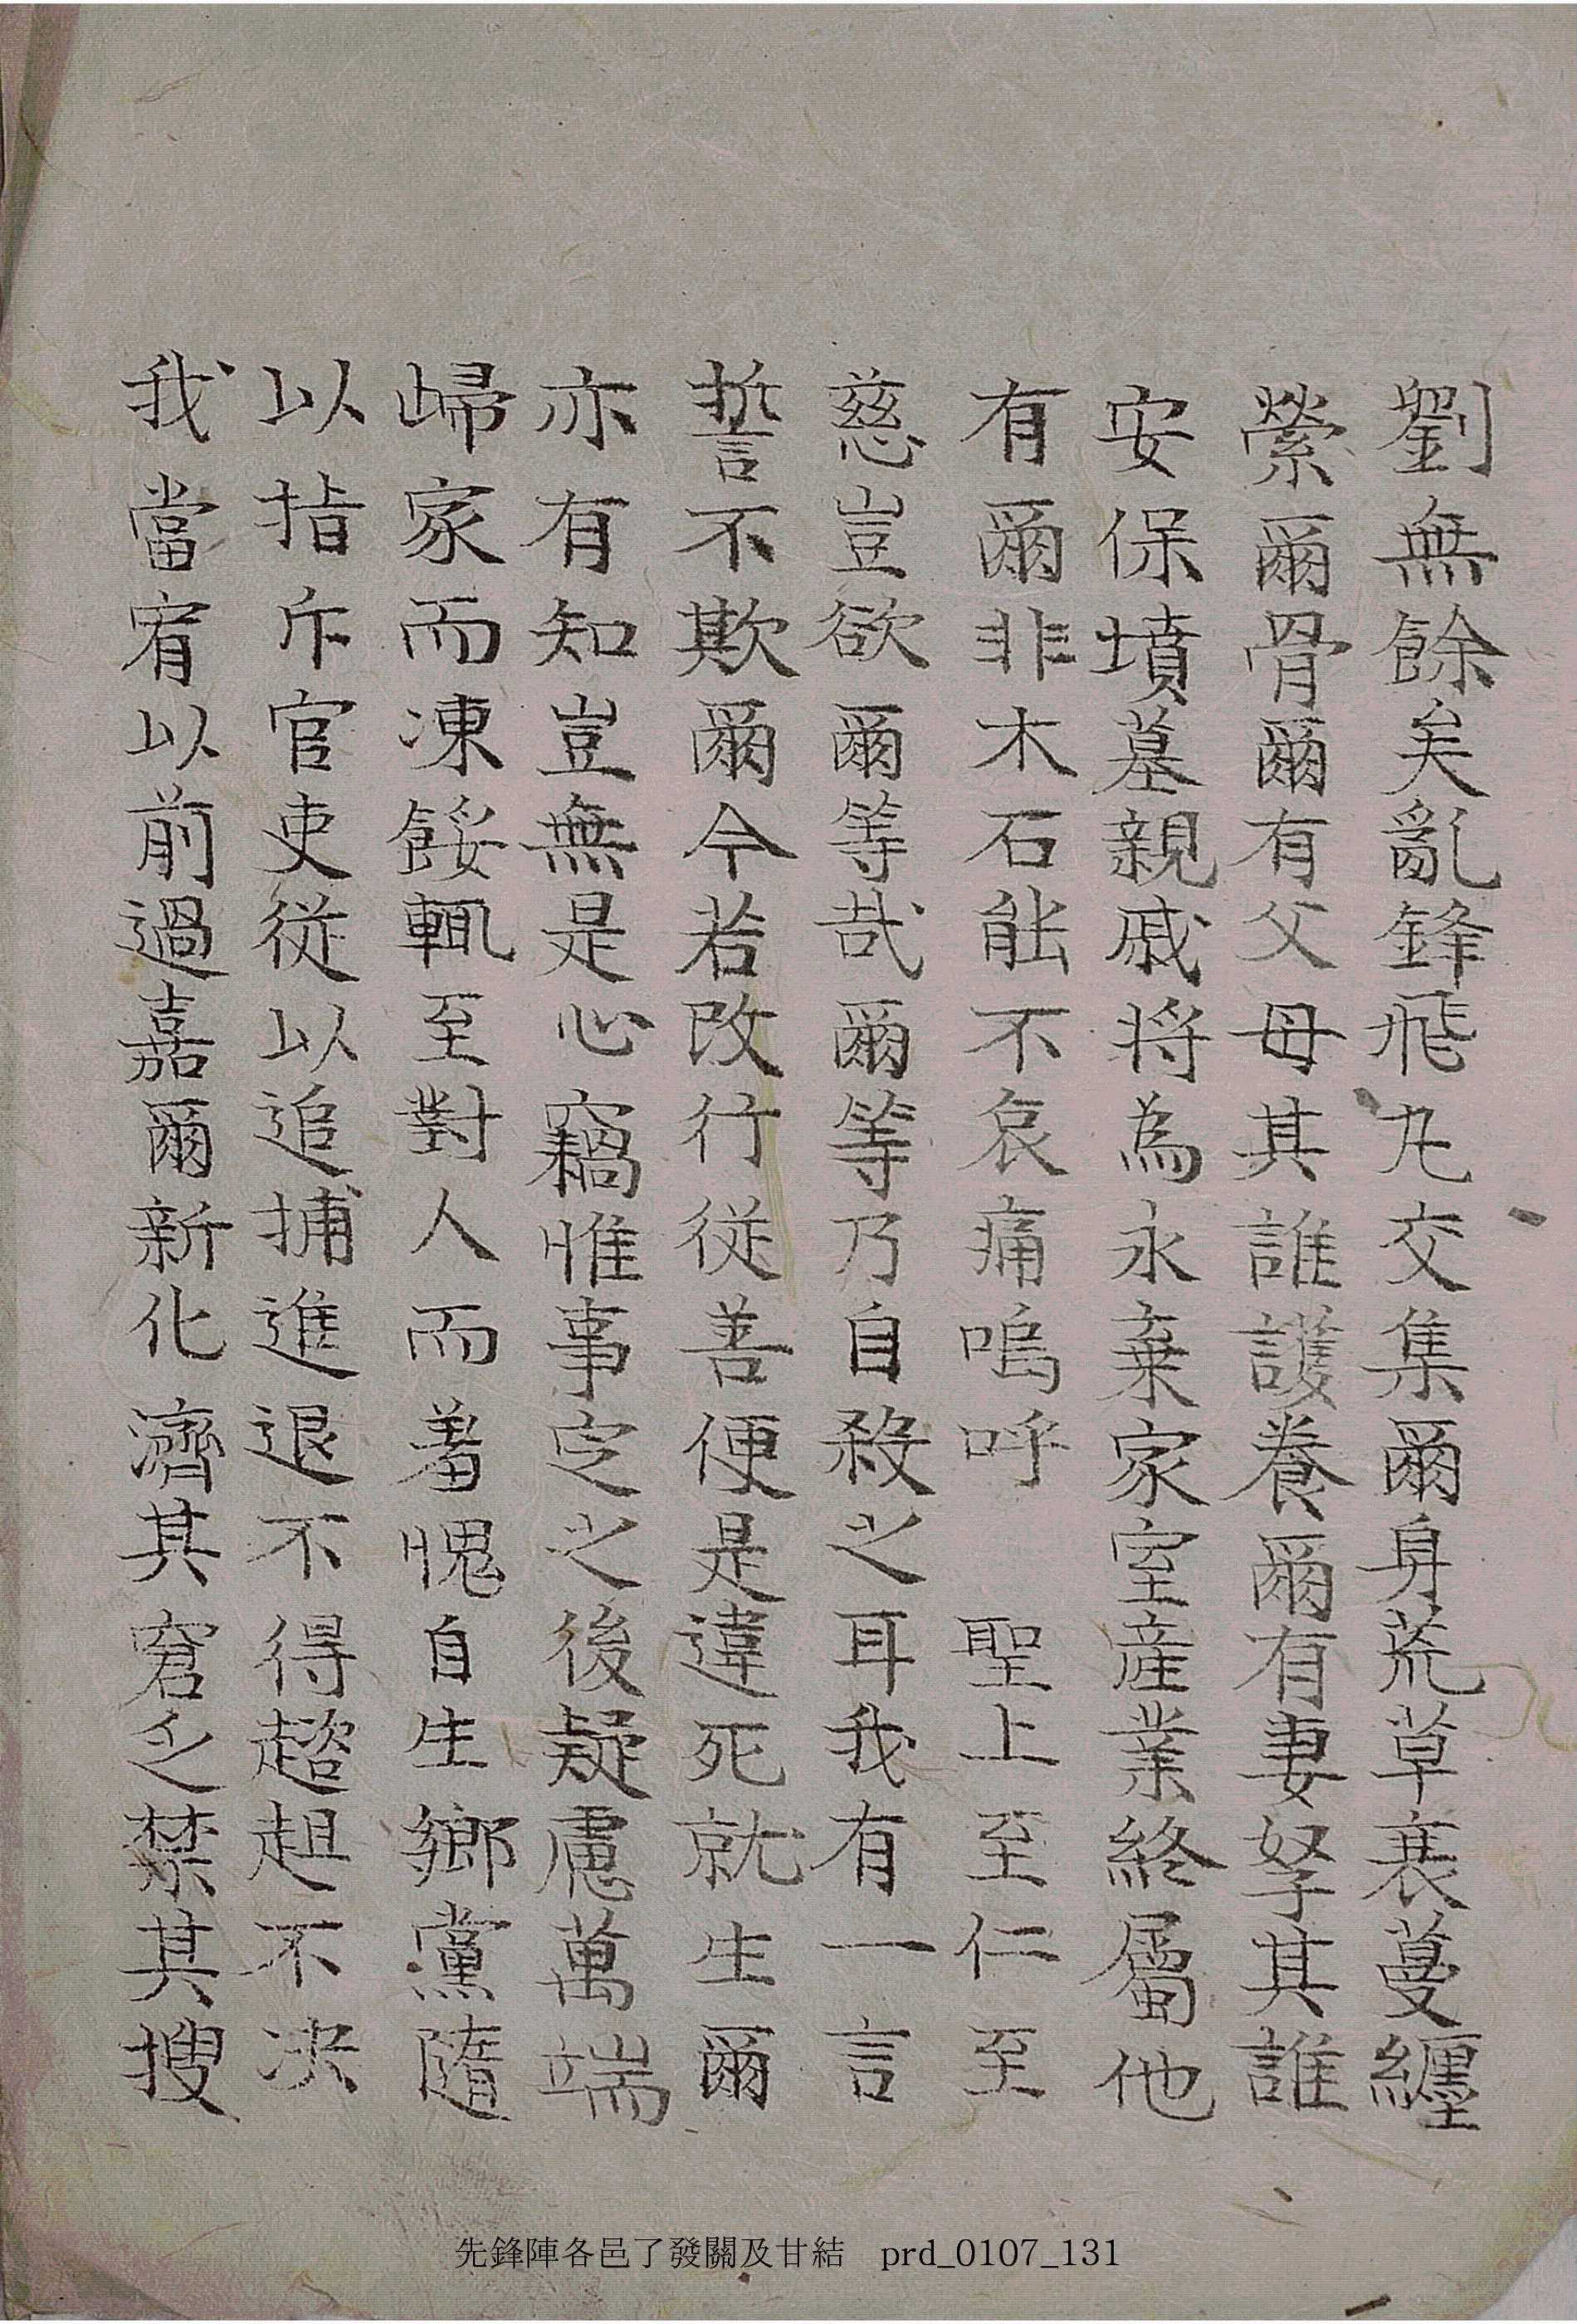 劉無餘矣亂鋒飛丸交集爾身荒草衰蔓纏
縈爾骨爾有父母其誰護養爾有妻孥其誰
安保墳墓親戚將為永棄家室産業終屬他
有爾非木石能不哀痛嗚呼 聖上至仁至
慈豈欲爾等哉爾等乃自殺之耳我有一言
誓不欺爾今若改行從善便是違死就生爾
亦有知豈無是心竊惟事定之後疑慮萬端
歸家而凍餒輒至對人而羞愧自生鄉黨隨
以指斥官吏從以追捕進退不得趦趄不決
我當宥以前過嘉爾新化濟其窘乏禁其搜
先鋒陣各邑了發關及甘結 prd_0107_131